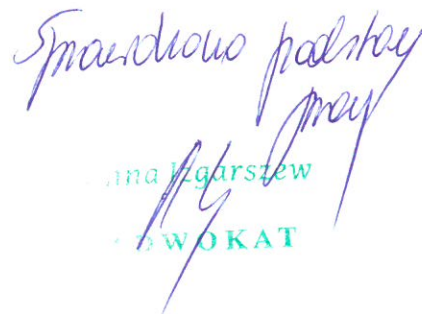 Sprawdzono podstawy
nna Izgarszew
DWOKAT